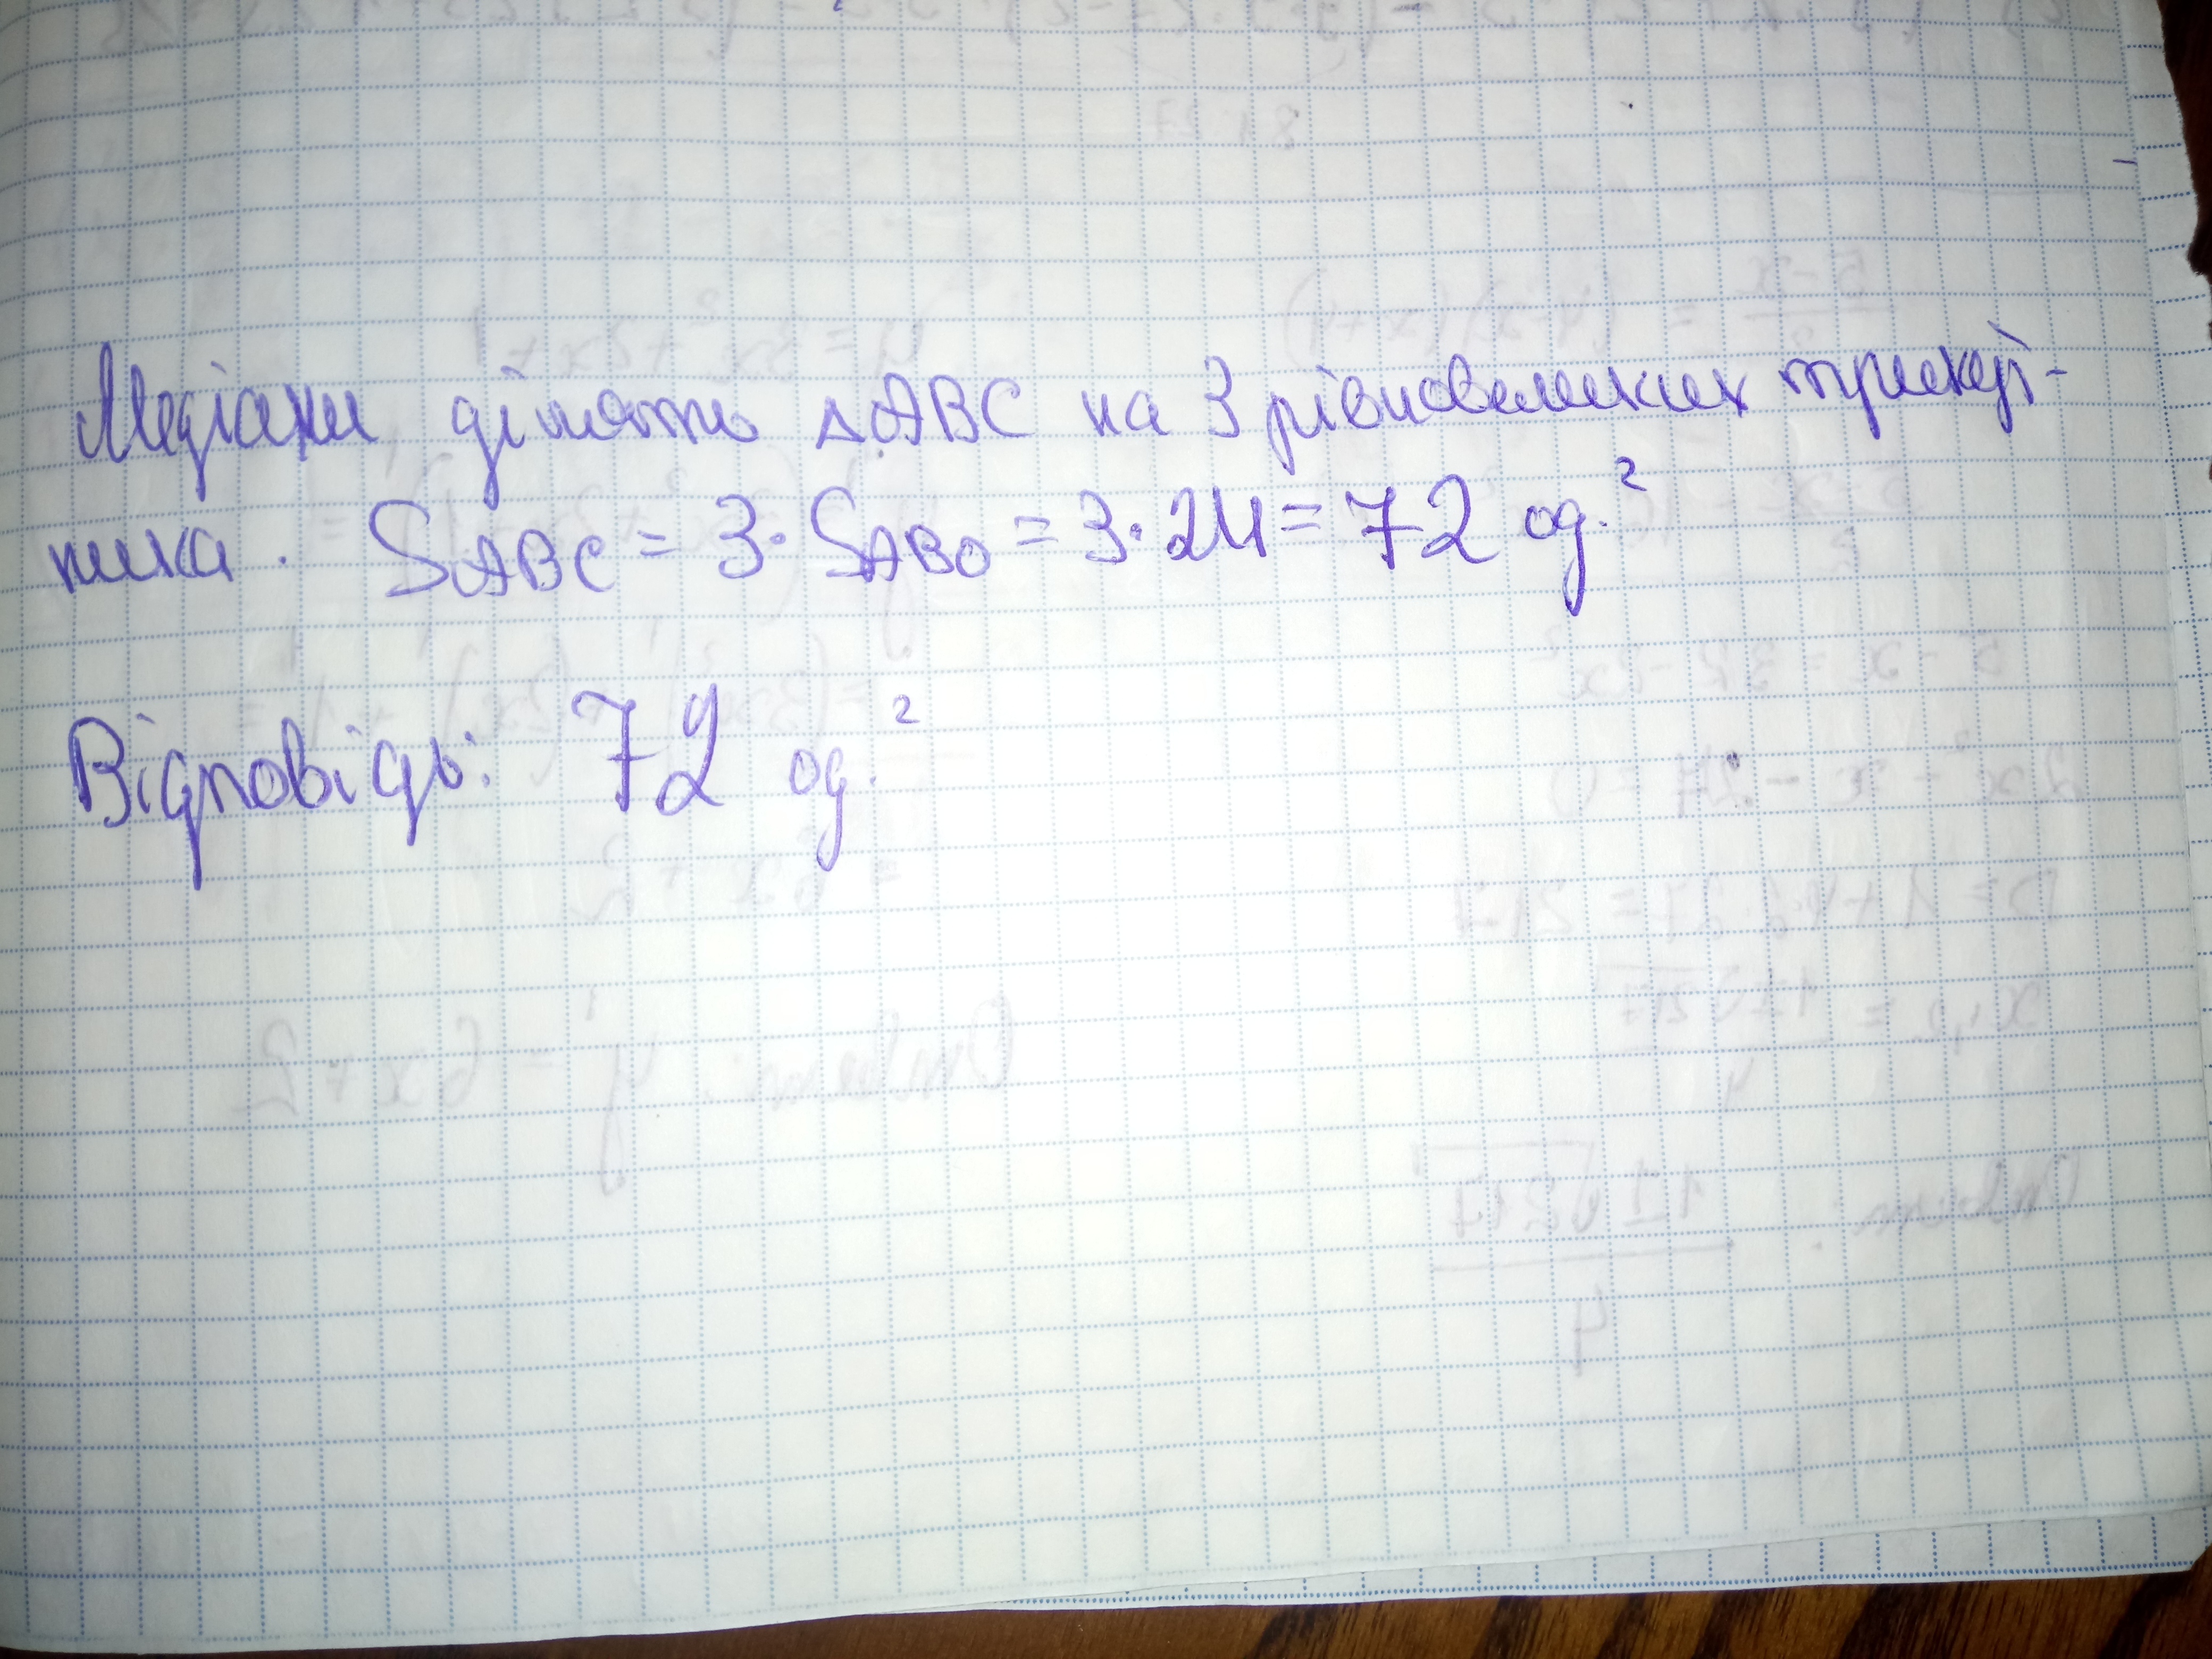 Медіани ділять △ABC на 3 рівновеликих трикут-
ника. S_ABC = 3·S_ABO = 3·24 = 72 од.²
Відповідь: 72 од.²